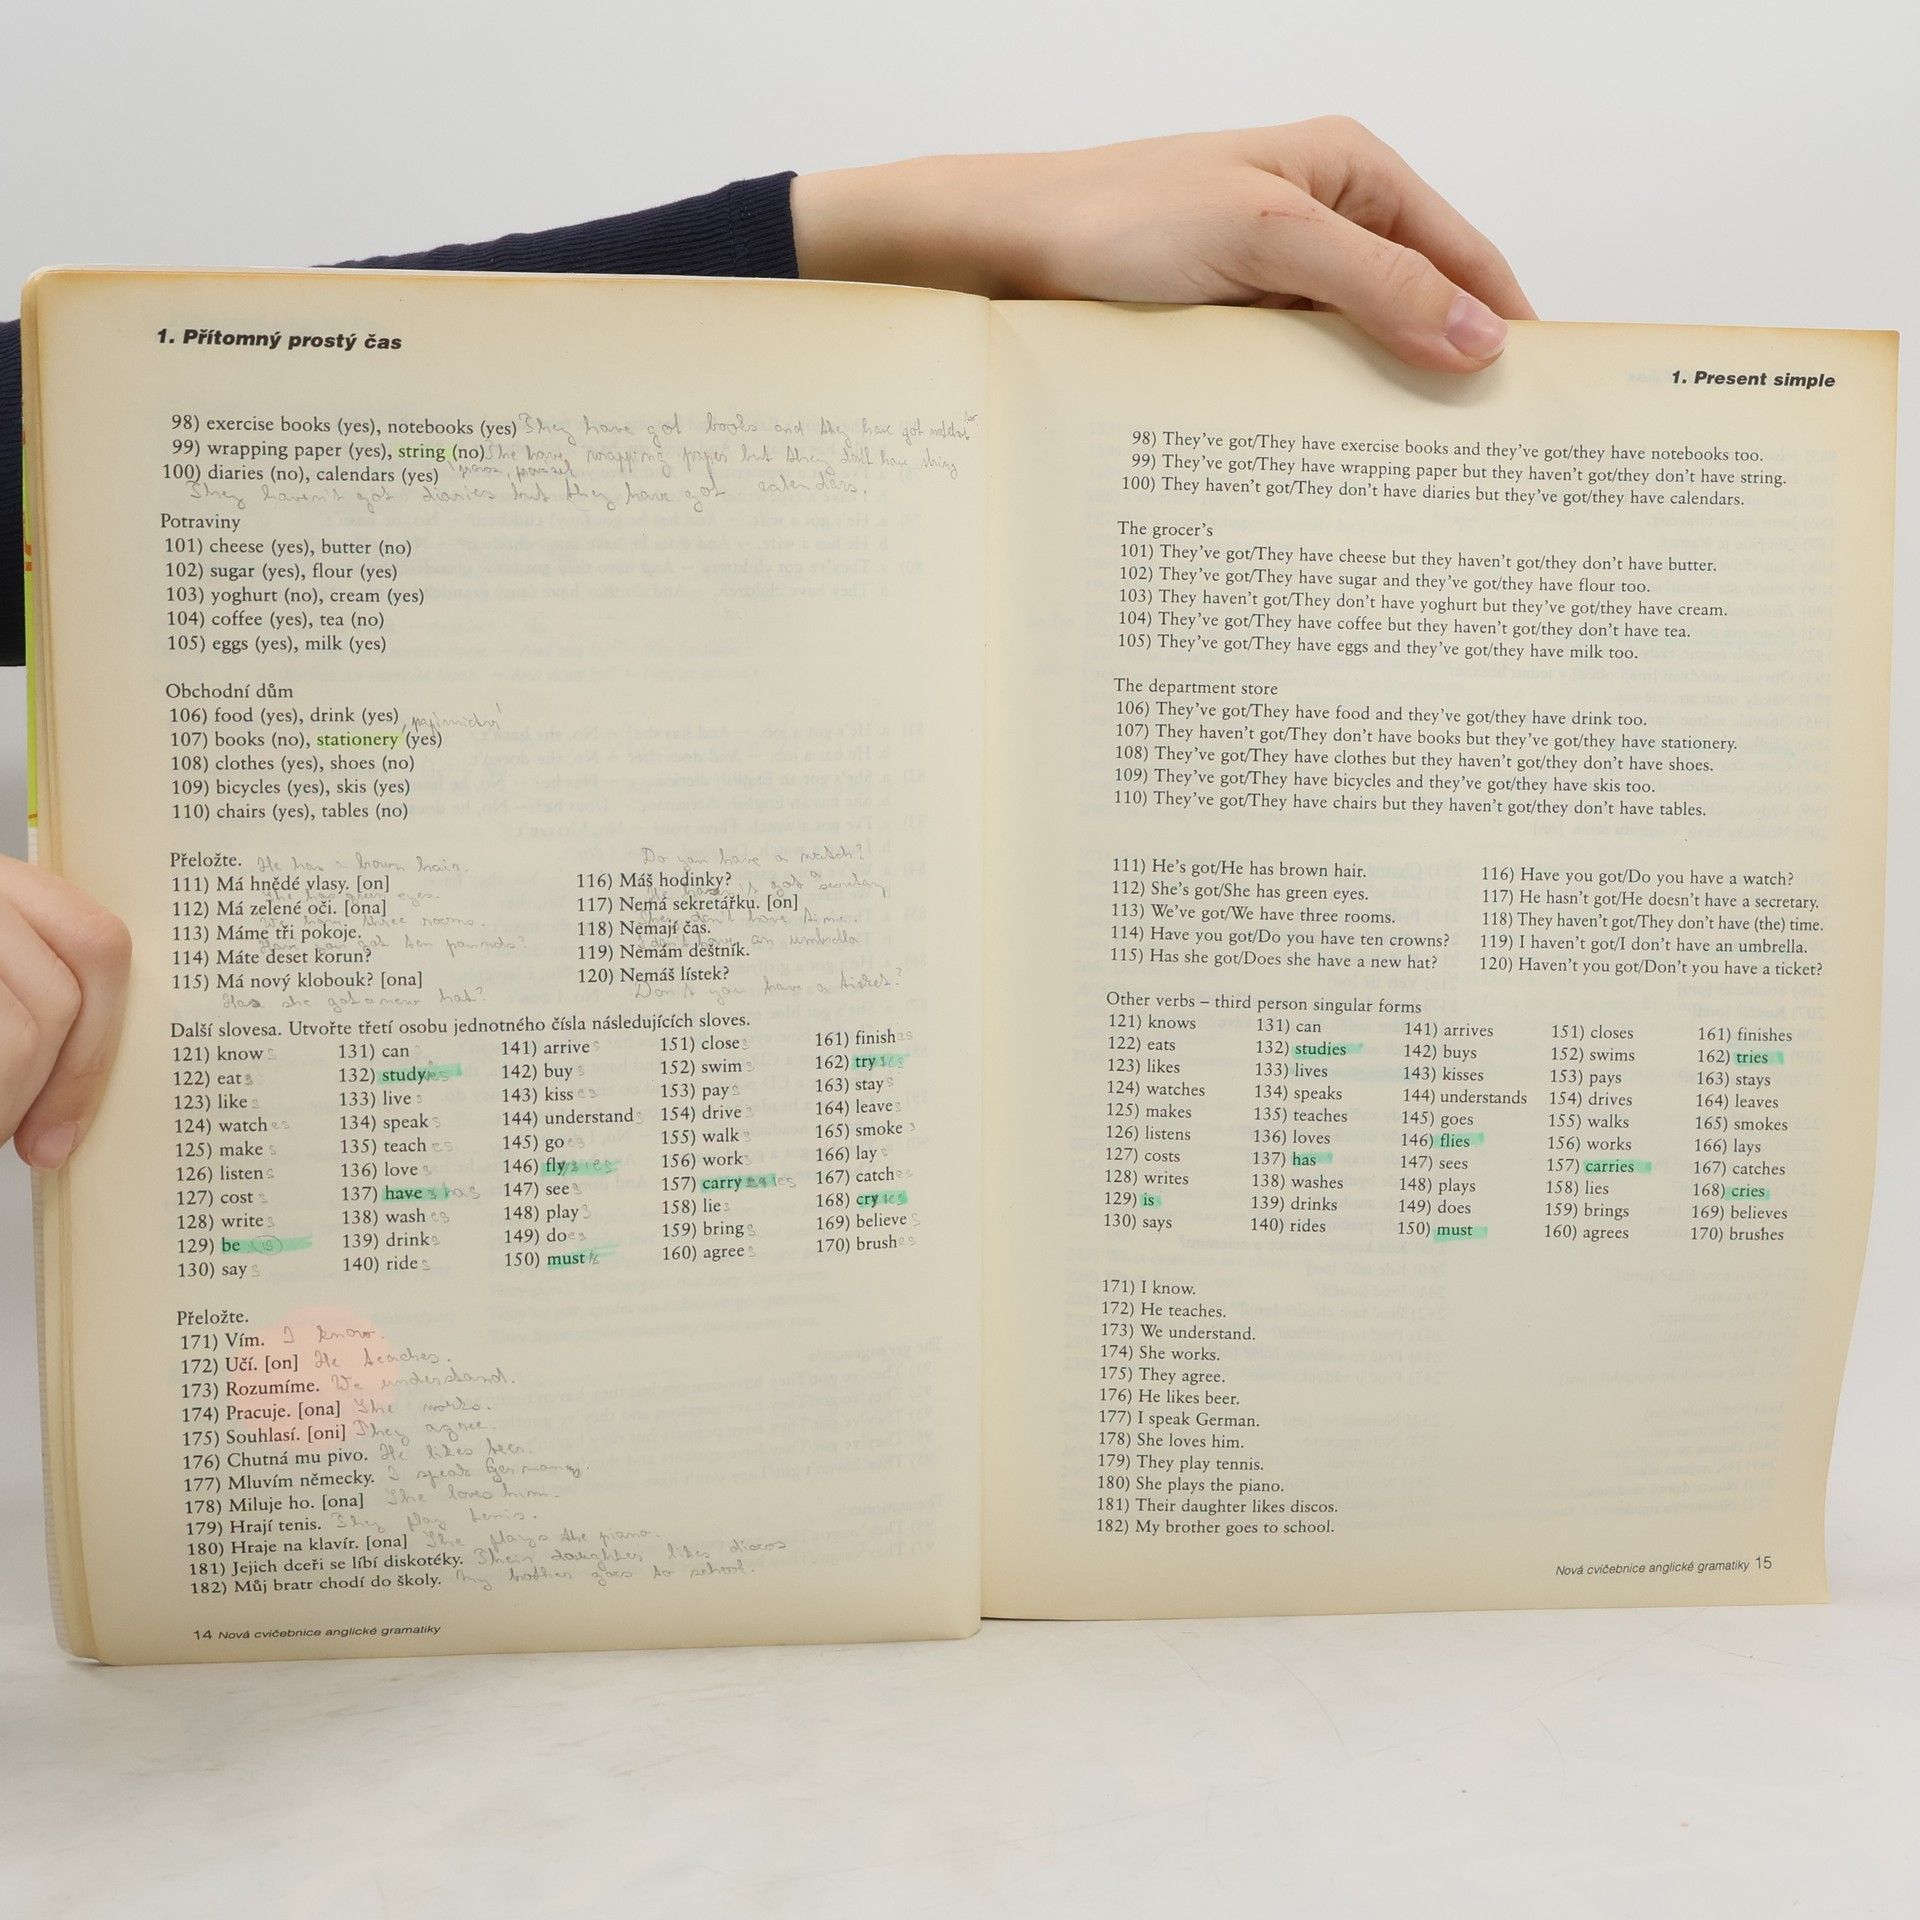 1. Přítomný prostý čas
98) exercise books (yes), notebooks (yes) They have got books and they have got notebooks too
99) wrapping paper (yes), string (no) She have wrapping paper but they don't have string
100) diaries (no), calendars (yes)
They haven't got diaries but they have got calendars.
Potraviny
101) cheese (yes), butter (no)
102) sugar (yes), flour (yes)
103) yoghurt (no), cream (yes)
104) coffee (yes), tea (no)
105) eggs (yes), milk (yes)
Obchodní dům
106) food (yes), drink (yes)
papírnictví
107) books (no), stationery (yes)
108) clothes (yes), shoes (no)
109) bicycles (yes), skis (yes)
110) chairs (yes), tables (no)
Přeložte. He has a brown hair.
111) Má hnědé vlasy. [on]
She has green eyes.
112) Má zelené oči. [ona]
We have three rooms.
113) Máme tři pokoje.
Have you got ten pounds?
114) Máte deset korun?
115) Má nový klobouk? [ona]
Has she got a new hat?
Do you have a watch?
116) Máš hodinky?
He hasn't got a secretary
117) Nemá sekretářku. [on]
They don't have time.
118) Nemají čas.
I don't have an umbrella
119) Nemám deštník.
120) Nemáš lístek?
Don't you have a ticket?
Další slovesa. Utvořte třetí osobu jednotného čísla následujících sloves.
121) knows
122) eats
123) likes
124) watches
125) makes
126) listens
127) costs
128) writes
129) be is
130) says
131) can
132) studyies
133) lives
134) speaks
135) teaches
136) loves
137) haves has
138) washes
139) drinks
140) rides
141) arrives
142) buys
143) kisses
144) understands
145) goes
146) flys ies
147) sees
148) plays
149) does
150) must
151) closes
152) swims
153) pays
154) drives
155) walks
156) works
157) carry ies
158) lies
159) brings
160) agrees
161) finishes
162) try ies
163) stays
164) leaves
165) smokes
166) lays
167) catches
168) cry ies
169) believes
170) brushes
Přeložte.
171) Vím. I know.
172) Učí. [on] He teaches.
173) Rozumíme. We understand.
174) Pracuje. [ona] She works.
175) Souhlasí. [oni] They agree.
176) Chutná mu pivo. He likes beer.
177) Mluvím německy. I speak Germany.
178) Miluje ho. [ona] She loves him.
179) Hrají tenis. They play tenis.
180) Hraje na klavír. [ona] She plays the piano.
181) Jejich dceři se líbí diskotéky. Their daughter likes discos
182) Můj bratr chodí do školy. My brother goes to school.
14 Nová cvičebnice anglické gramatiky
1. Present simple
98) They've got/They have exercise books and they've got/they have notebooks too.
99) They've got/They have wrapping paper but they haven't got/they don't have string.
100) They haven't got/They don't have diaries but they've got/they have calendars.
The grocer's
101) They've got/They have cheese but they haven't got/they don't have butter.
102) They've got/They have sugar and they've got/they have flour too.
103) They haven't got/They don't have yoghurt but they've got/they have cream.
104) They've got/They have coffee but they haven't got/they don't have tea.
105) They've got/They have eggs and they've got/they have milk too.
The department store
106) They've got/They have food and they've got/they have drink too.
107) They haven't got/They don't have books but they've got/they have stationery.
108) They've got/They have clothes but they haven't got/they don't have shoes.
109) They've got/They have bicycles and they've got/they have skis too.
110) They've got/They have chairs but they haven't got/they don't have tables.
111) He's got/He has brown hair.
112) She's got/She has green eyes.
113) We've got/We have three rooms.
114) Have you got/Do you have ten crowns?
115) Has she got/Does she have a new hat?
116) Have you got/Do you have a watch?
117) He hasn't got/He doesn't have a secretary.
118) They haven't got/They don't have (the) time.
119) I haven't got/I don't have an umbrella.
120) Haven't you got/Don't you have a ticket?
Other verbs – third person singular forms
121) knows
122) eats
123) likes
124) watches
125) makes
126) listens
127) costs
128) writes
129) is
130) says
131) can
132) studies
133) lives
134) speaks
135) teaches
136) loves
137) has
138) washes
139) drinks
140) rides
141) arrives
142) buys
143) kisses
144) understands
145) goes
146) flies
147) sees
148) plays
149) does
150) must
151) closes
152) swims
153) pays
154) drives
155) walks
156) works
157) carries
158) lies
159) brings
160) agrees
161) finishes
162) tries
163) stays
164) leaves
165) smokes
166) lays
167) catches
168) cries
169) believes
170) brushes
171) I know.
172) He teaches.
173) We understand.
174) She works.
175) They agree.
176) He likes beer.
177) I speak German.
178) She loves him.
179) They play tennis.
180) She plays the piano.
181) Their daughter likes discos.
182) My brother goes to school.
Nová cvičebnice anglické gramatiky 15